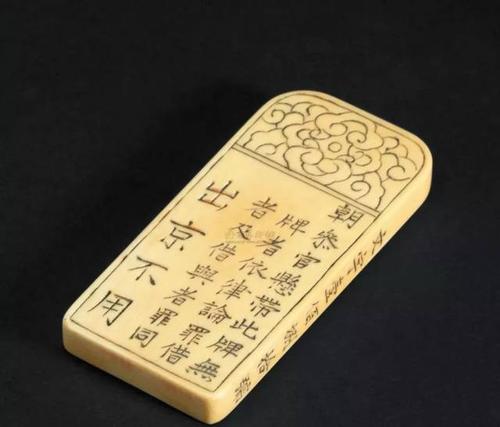 朝叅官懸帶此牌無
牌者依律論罪借
者及借與者罪同
出京不用
文字壹